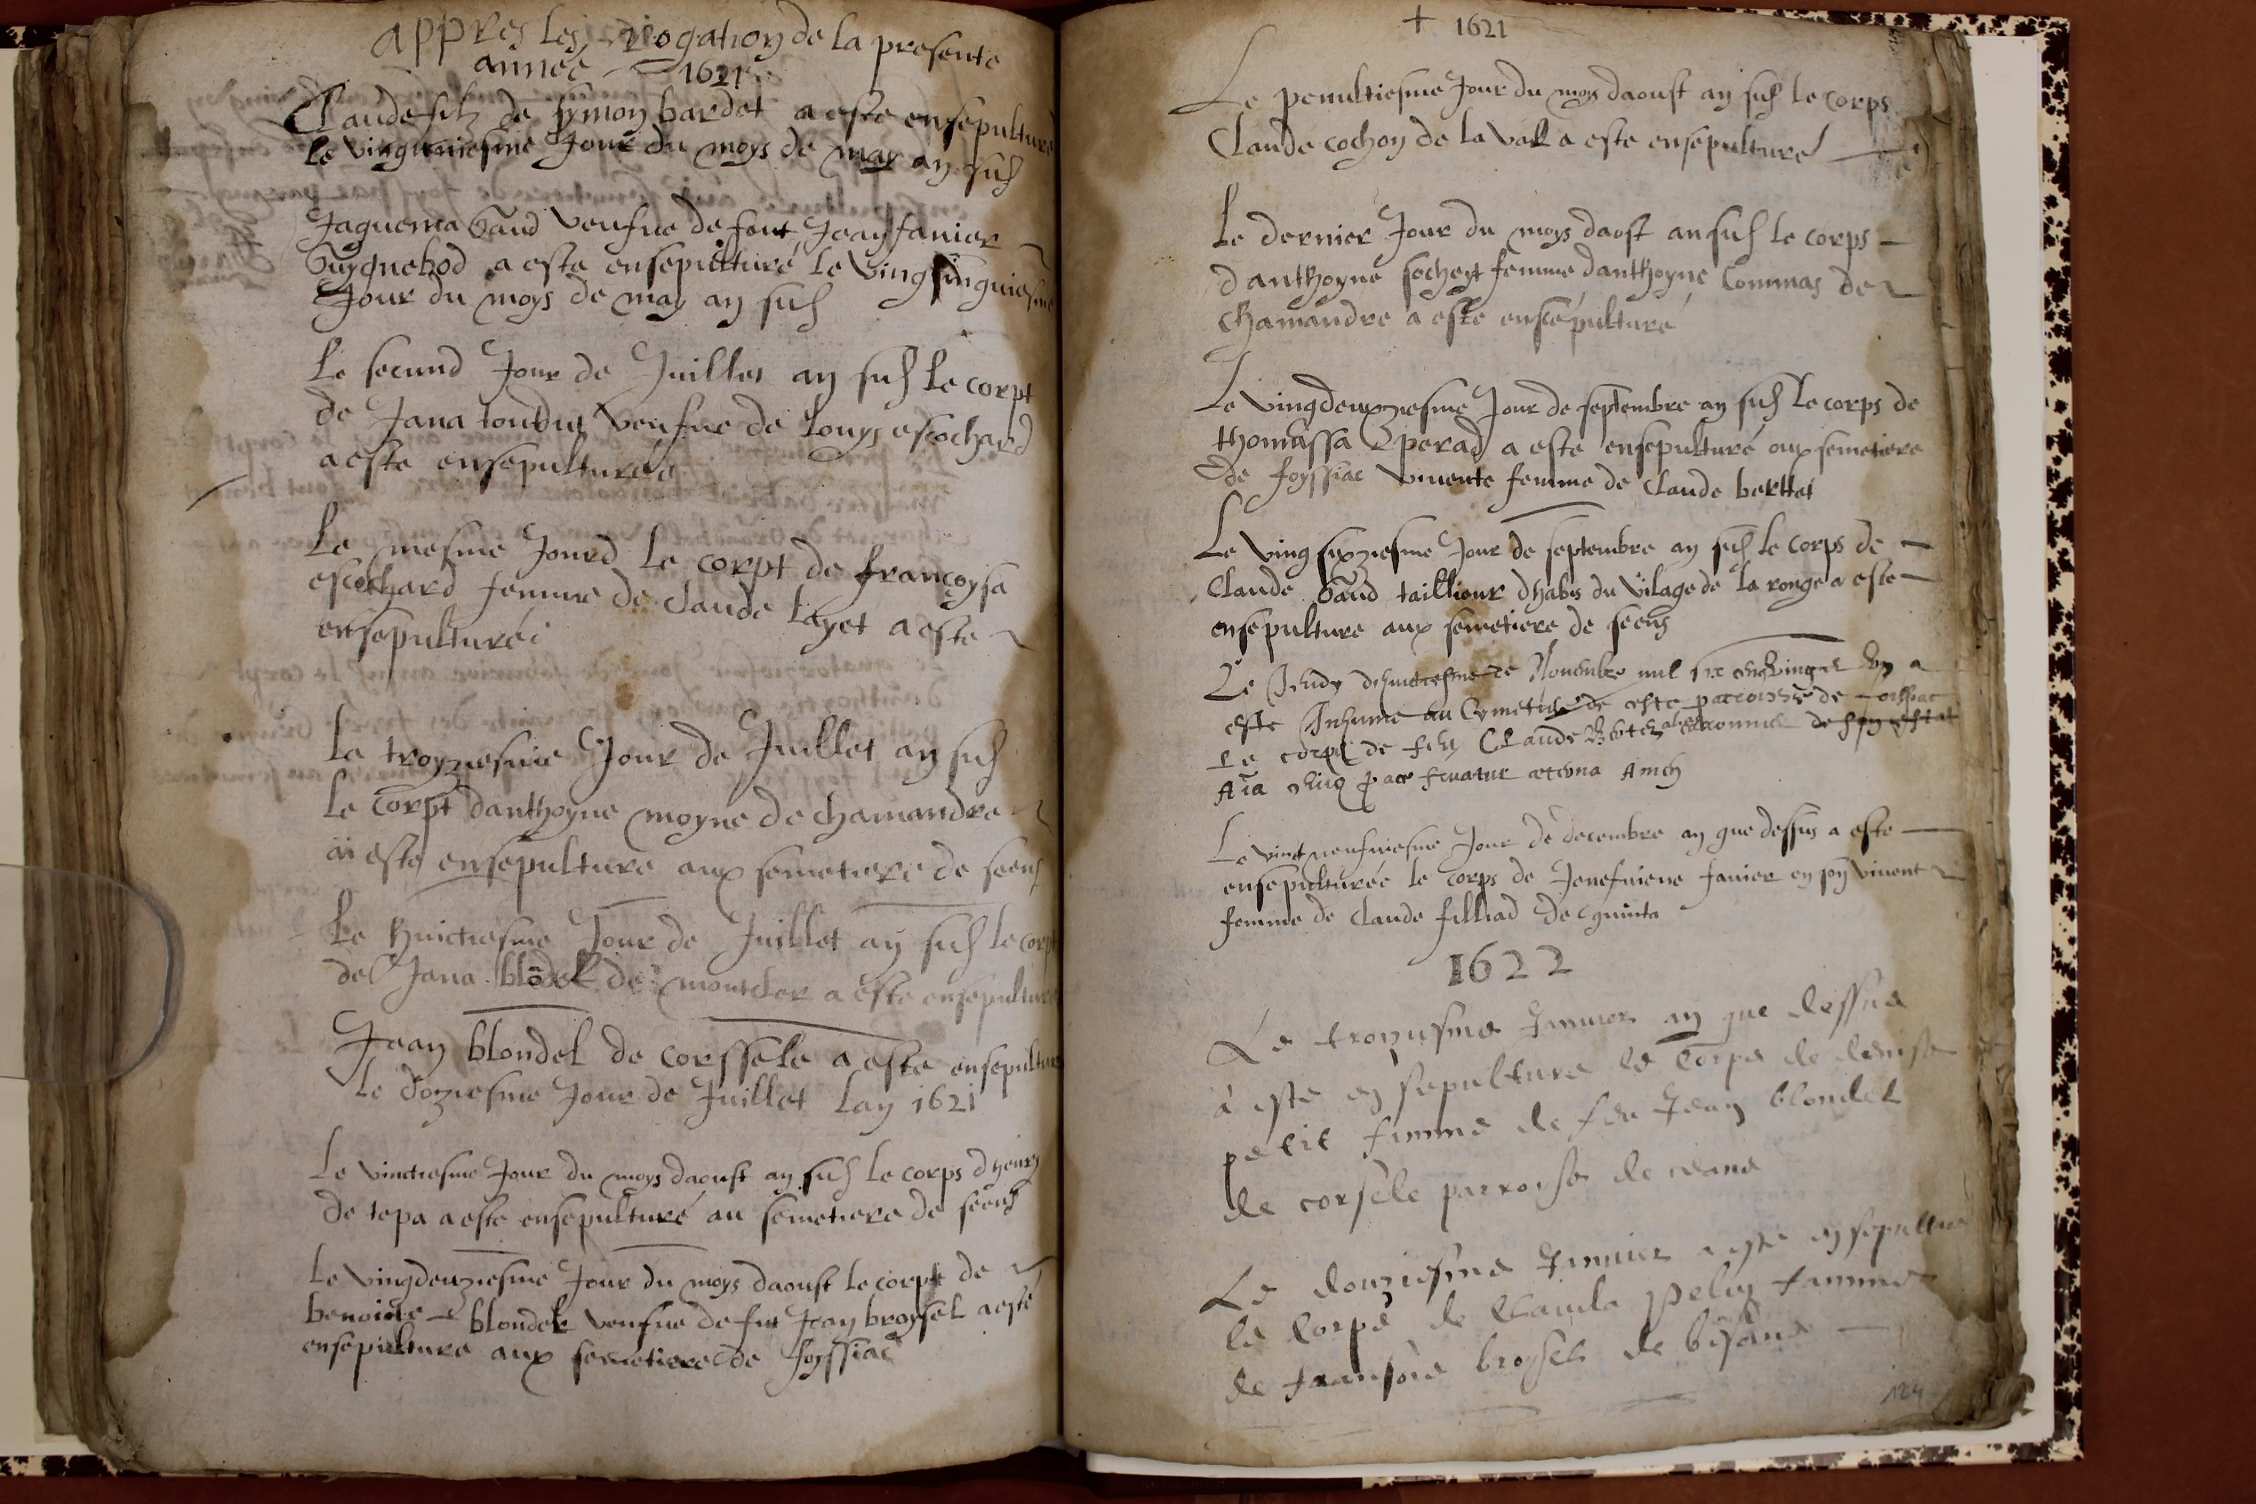 appres les rogation de la presente
annee 1621
Claude filz de symon bardet a este ensepulturé
le vinguniesme Jour du moys de may an sus
Jaquema Gaud veufue de fout Jean fanier
a este ensepulturé le ving sinquiesme
Jour du moys de may an sus
Le secund Jour de Juillet an sus le corpt
de Jana veufue de Louys escochard
a este ensepulturée
Le mesme Jourd le corpt de francoysa
escochard femme de claude layet a este
ensepulturéé
Le troyziesme Jour de Juillet an sus
Le corpt danthoyne moyne de chamandre
a este ensepulture aux semetiere de seens
Le huictiesme Jour de Juillet an sus le corpt
de Jana blõdel de montcler a este ensepulture
Jean blondel de corssele a este ensepulture
le doziesme Jour de Juillet lan 1621
Le vinctiesme Jour du moys daoust an sus le corps dhenry
de tepa a este ensepulturé au semetiere de seens
Le vingdeuziesme Jour du moys daoust le corpt de
benoiste blondel veufue de fut Jean broysel a esté
ensepulture aux semetiere de foyssiac
+ 1621
Le penultiesme Jour du moys daoust an sus le corps
Claude cochon de la val a este ensepulturé
Le dernier Jour du moys daost an sus le corps
danthoyne femme danthoyne Commas de
chamandre a este enscépulturé
Le vingdeuxziesme Jour de septembre an sus le corps de
thomassa perad a este ensepulturé aux semetiere
de foyssiac viuente femme de claude berthet
Le ving sixziesme Jour de septembre an sus le corps de
Claude Gaud tailliour dhabis du vilage de la ronge a este
ensepulture aux semetiere de seens
Le Jeudy de Nouembre mil six centz vingt et un a
este Inhumé au Cymetiere de ceste parroisse de foissiac
Le corps de feu Claude de son estat
pace fruatur æterna Amen
Le vinct neufuiesme Jour de decembre an que dessus a este
ensepulturéé le corps de Jenefuieue fanier en son viuent
femme de claude filliad de cquinta
1622
Le troziesme Januier an que dessus
a este ensepulture le corps de denise
petit femme de feu Jean blondel
de corsele parroyse de
Le douziesme Januier a este ensepulture
le corps de Clauda pelin famme
de fransois broysel de
124